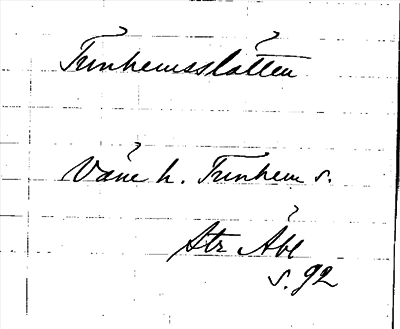 Tunhemsslätten
Väne h. Tunhem s.
Str Åbl
s. 92